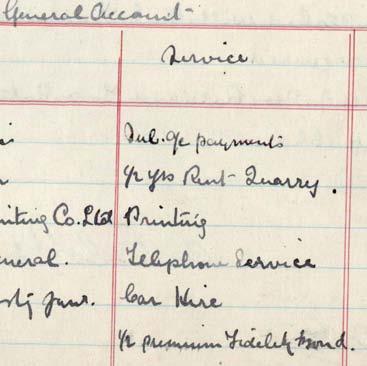 General Account
Service
Sub. a/c payments
½ yrs Rent Quarry.
nting Co. Ltd Printing
neral. Telephone Service
Junr. Car Hire
½ premium Fidelity Bond.